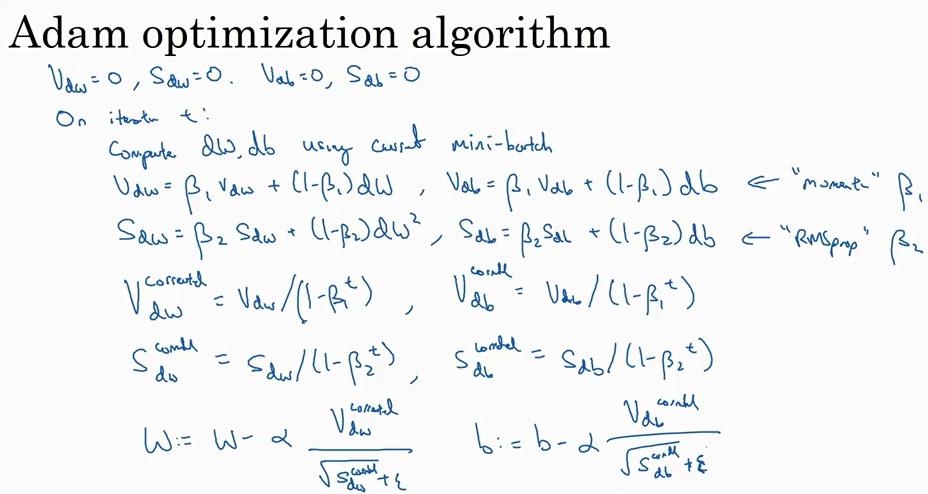 Adam optimization algorithm
V_dw = 0, S_dw = 0. V_db = 0, S_db = 0
On iteratn t:
Compute dW, db using current mini-batch
V_dw = β₁ V_dw + (1-β₁) dW, V_db = β₁ V_db + (1-β₁) db ← "moment" β₁
S_dw = β₂ S_dw + (1-β₂) dW², S_db = β₂ S_db + (1-β₂) db ← "RMSprop" β₂
V_dw^corrected = V_dw/(1-β₁^t), V_db^corrected = V_db/(1-β₁^t)
S_dw^corrected = S_dw/(1-β₂^t), S_db^corrected = S_db/(1-β₂^t)
W := W - α V_dw^corrected / (√S_dw^corrected + ε) b := b - α V_db^corrected / (√S_db^corrected + ε)